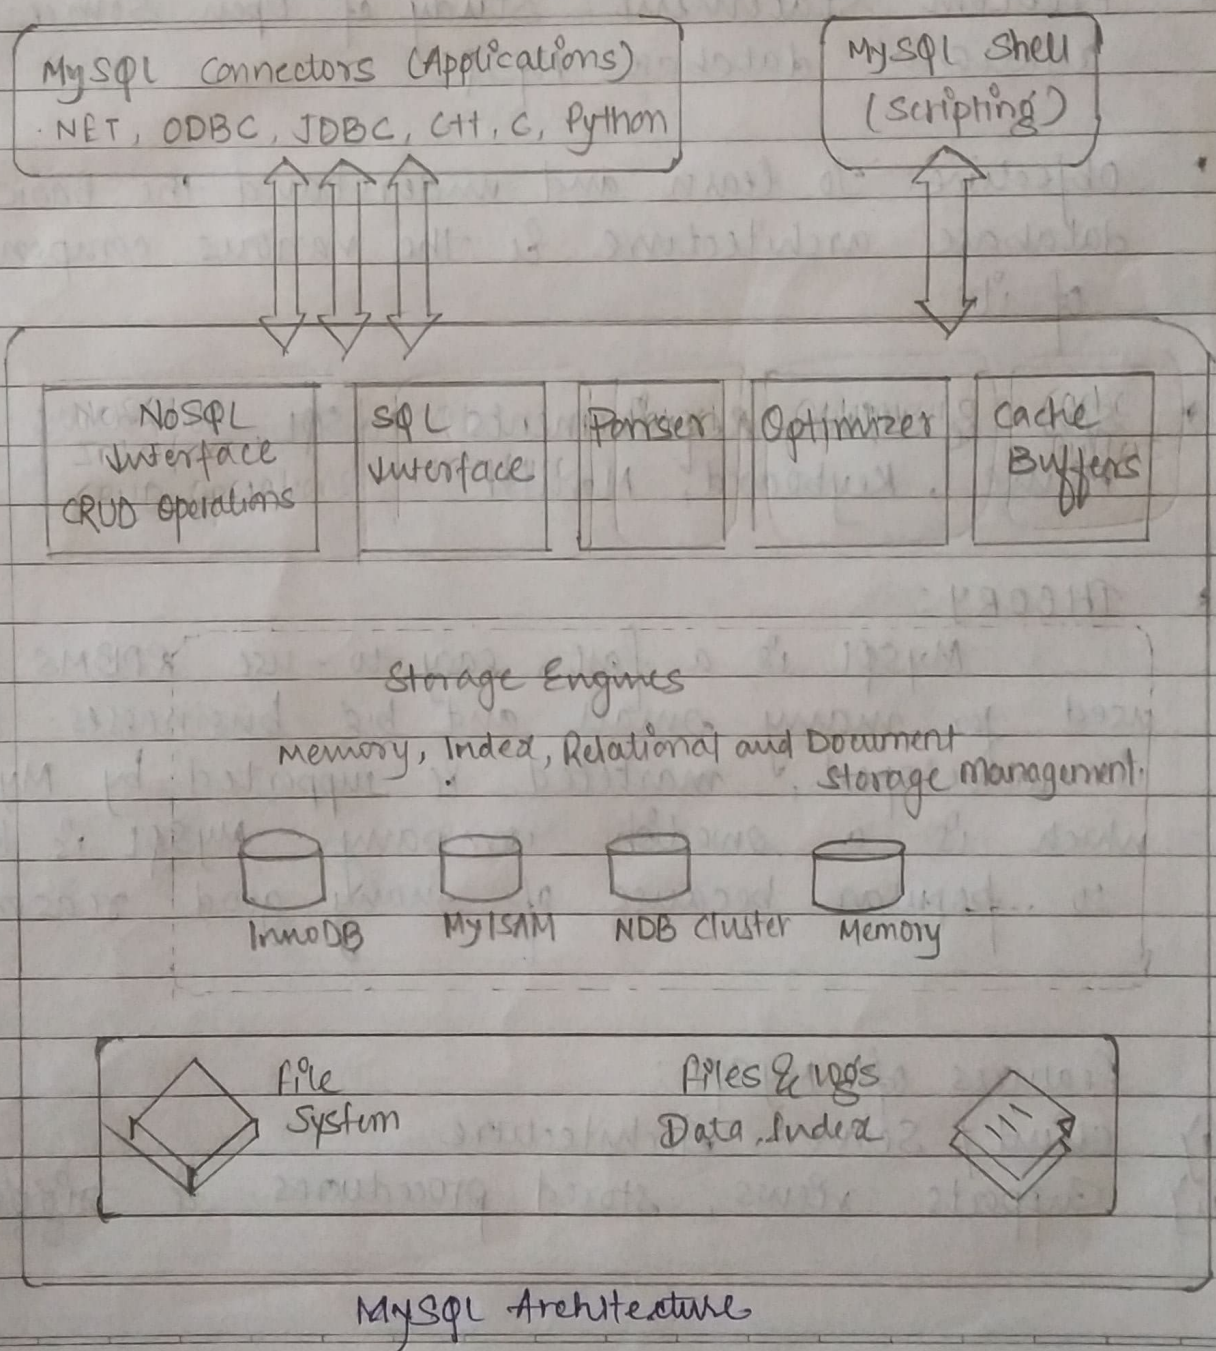 MySQL Connectors (Applications)
.NET, ODBC, JDBC, C++, C, Python
MySQL Shell
(Scripting)
NoSQL
Interface
CRUD Operations
SQL
Interface
Parser
Optimizer
Cache
Buffers
Storage Engines
Memory, Index, Relational and Document
Storage Management.
InnoDB
MyISAM
NDB Cluster
Memory
File
System
Files & logs
Data, Index
MySQL Architecture